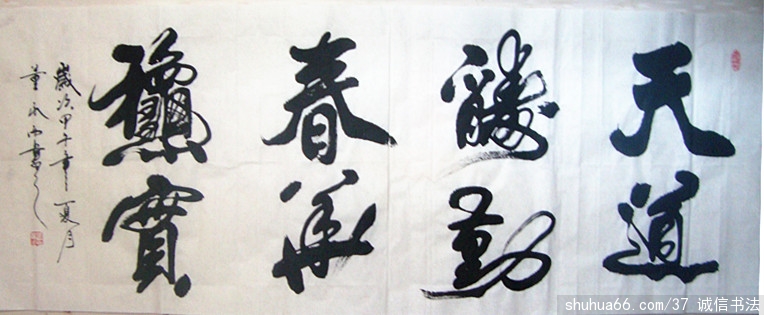 天道
酬勤
春華
龝實
歲次甲午年夏月
董 書之
shuhua66.com/37 诚信书法